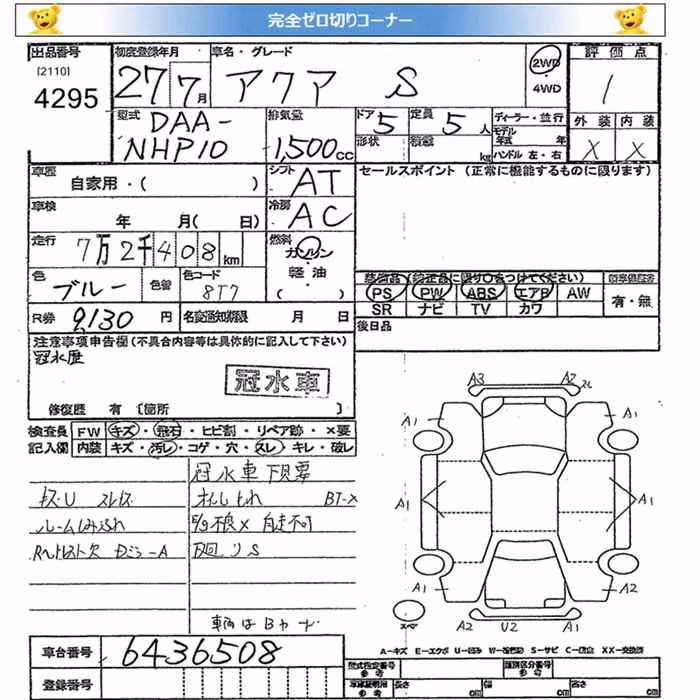 完全ゼロ切りコーナー
出品番号 初度登録年月 車名・グレード 2WD 評価点
[2110] 27 7月 アクア S 4WD 1
4295
型式 排気量 ドア 定員 ディーラー・並行 外装 内装
DAA- 5 5人 モデル年式 年
NHP10 1,500cc 形状 積載 kg ハンドル 左・右 X X
車歴 シフト セールスポイント (正常に機能するものに限ります)
自家用・( ) AT
車検 冷房
年 月( 日) AC
走行 7万2千408km 燃料 ガソリン
軽油
( )
色 ブルー 色替 色コード 8T7
装備品(純正品に限り○をつけてください)
PS PW ABS エアB AW 有・無
SR ナビ TV カワ
R券 9,130円 名変通知期限 月 日 後日品
注意事項申告欄(不具合内容等は具体的に記入して下さい)
冠水歴
冠水車
修復歴 有 [箇所 ]
検査員 FW キズ・飛石・ヒビ割・リペア跡・×要
記入欄 内装 キズ・汚レ・コゲ・穴・スレ・キレ・破レ
冠水車
キズ・U スレキズ BT-X
ルーム
自走不可
S
A3 A2
A1 A1
A1 A1
A2 A2
A2 U2 A1
A-キズ E-エクボ U-凹み W-補修跡 S-サビ C-腐食 XX-交換済
車台番号 6436508
型式指定番号 参考 類別区分番号 参考
登録番号
車庫証明用 参考 長さ cm 幅 cm 高さ cm